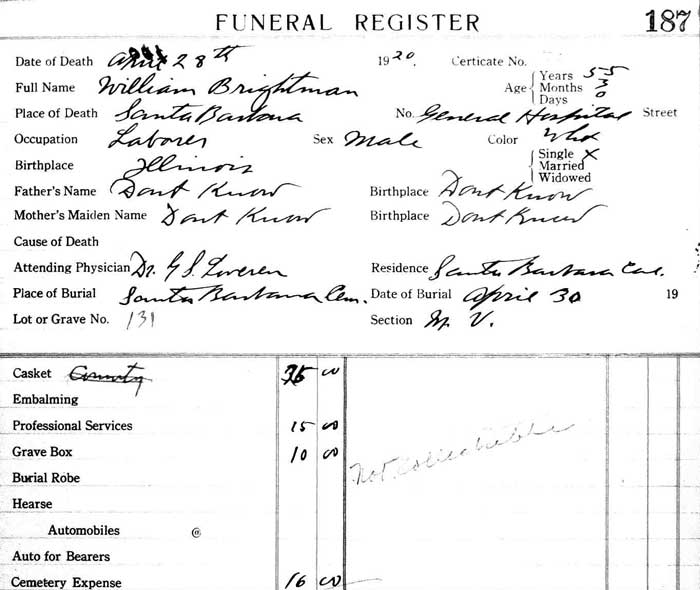 FUNERAL REGISTER 187
Date of Death April 28th 1920. Certicate No.
Full Name William Brightman Age Years 55 Months 3 Days 0
Place of Death Santa Barbara No. General Hospital Street
Occupation Laborer Sex Male Color
Birthplace Illinois Single X Married Widowed
Father's Name Dont Know Birthplace Dont Know
Mother's Maiden Name Dont Know Birthplace Dont Know
Cause of Death
Attending Physician Dr. G S. Loveren Residence Santa Barbara Cal.
Place of Burial Santa Barbara Cem. Date of Burial April 30 19
Lot or Grave No. 131 Section M. V.
Casket County 35 00
Embalming
Professional Services 15 00
Grave Box 10 00
Not Collectible
Burial Robe
Hearse
Automobiles @
Auto for Bearers
Cemetery Expense 16 00